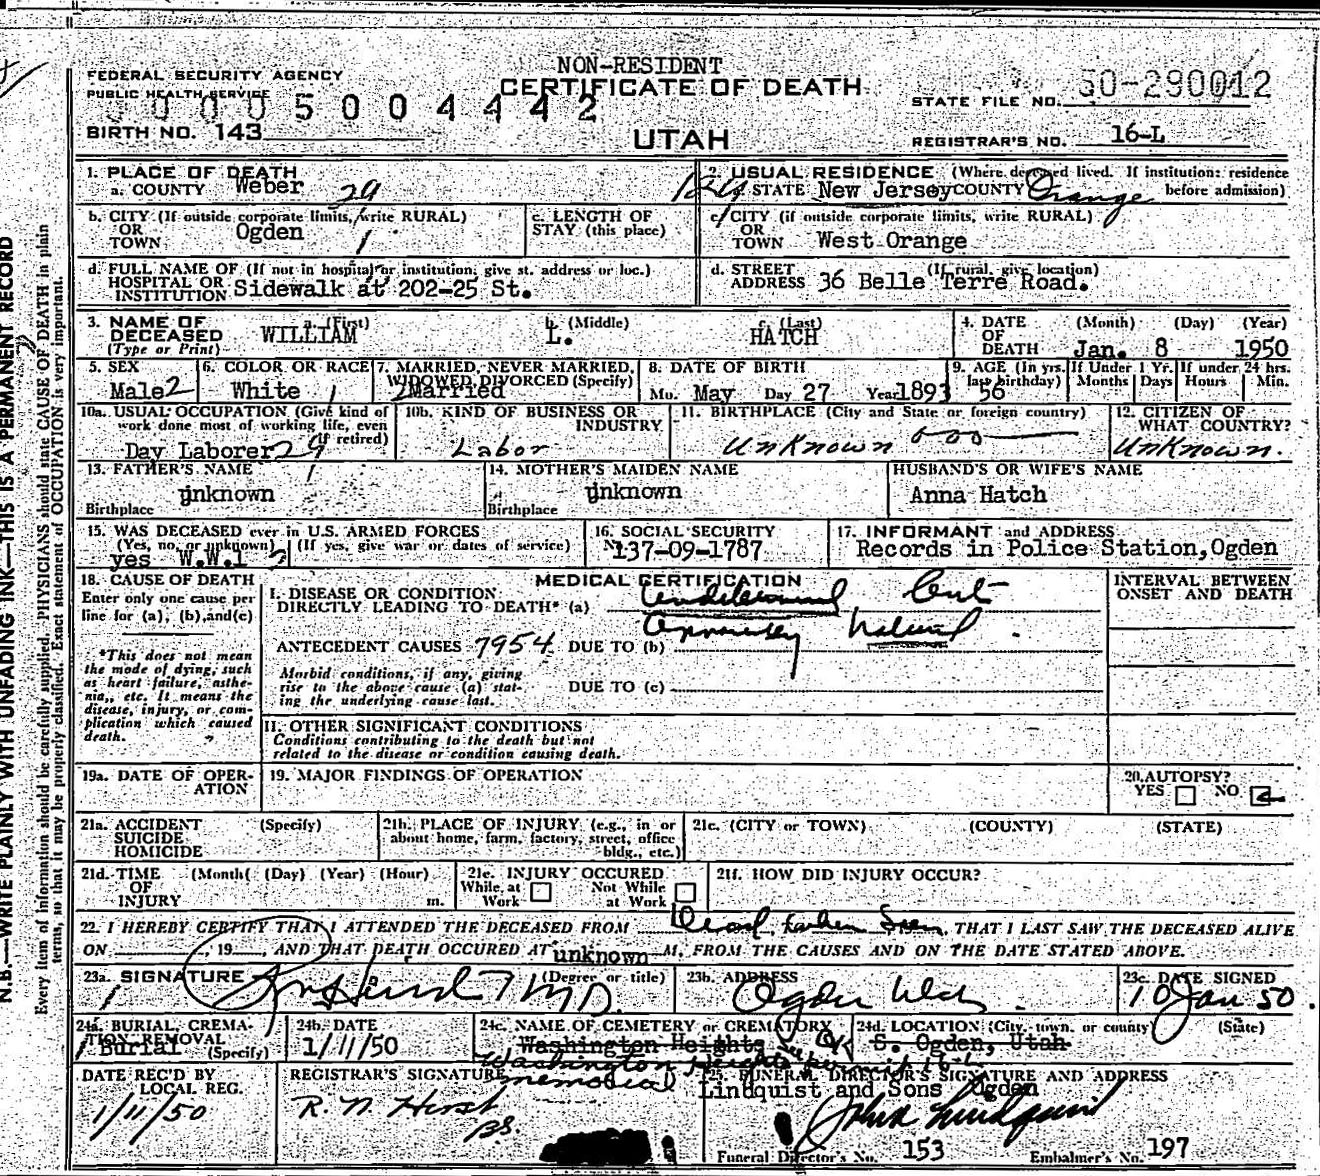 NON-RESIDENT
FEDERAL SECURITY AGENCY
PUBLIC HEALTH SERVICE
CERTIFICATE OF DEATH
0005004442
STATE FILE NO. 50-290012
BIRTH NO. 143
UTAH
REGISTRAR'S NO. 16-L
1. PLACE OF DEATH
a. COUNTY Weber 29
2. USUAL RESIDENCE (Where deceased lived. If institution: residence before admission)
STATE New Jersey COUNTY Orange
b. CITY (If outside corporate limits, write RURAL)
OR
TOWN Ogden 1
c. LENGTH OF
STAY (this place)
c. CITY (if outside corporate limits, write RURAL)
OR
TOWN West Orange
d. FULL NAME OF (If not in hospital or institution, give st. address or loc.)
HOSPITAL OR
INSTITUTION Sidewalk at 202-25 St.
d. STREET (If rural, give location)
ADDRESS 36 Belle Terre Road.
3. NAME OF DECEASED
(Type or Print)
a. (First) WILLIAM
b. (Middle) L.
c. (Last) HATCH
4. DATE OF DEATH (Month) (Day) (Year)
Jan. 8 1950
5. SEX
Male 2
6. COLOR OR RACE
White 1
7. MARRIED, NEVER MARRIED,
WIDOWED DIVORCED (Specify)
Married
8. DATE OF BIRTH
Mo. May Day 27 Year 1893
9. AGE (In yrs. last birthday) 56
If Under 1 Yr. Months Days
If under 24 hrs. Hours Min.
10a. USUAL OCCUPATION (Give kind of
work done most of working life, even
if retired)
Day Laborer 29
10b. KIND OF BUSINESS OR
INDUSTRY
Labor
11. BIRTHPLACE (City and State or foreign country)
Unknown 000
12. CITIZEN OF
WHAT COUNTRY?
Unknown.
13. FATHER'S NAME
unknown
Birthplace
14. MOTHER'S MAIDEN NAME
unknown
Birthplace
HUSBAND'S OR WIFE'S NAME
Anna Hatch
15. WAS DECEASED ever in U.S. ARMED FORCES
(Yes, no, or unknown) (If yes, give war or dates of service)
yes W.W.1
16. SOCIAL SECURITY
137-09-1787
17. INFORMANT and ADDRESS
Records in Police Station, Ogden
18. CAUSE OF DEATH
Enter only one cause per
line for (a), (b), and (c)
*This does not mean
the mode of dying, such
as heart failure, asthe-
nia, etc. It means the
disease, injury, or com-
plication which caused
death.
MEDICAL CERTIFICATION
I. DISEASE OR CONDITION
DIRECTLY LEADING TO DEATH* (a) Undetermined but
apparently natural.
ANTECEDENT CAUSES 7954 DUE TO (b)
Morbid conditions, if any, giving
rise to the above cause (a) stat-
ing the underlying cause last.
DUE TO (c)
II. OTHER SIGNIFICANT CONDITIONS
Conditions contributing to the death but not
related to the disease or condition causing death.
INTERVAL BETWEEN
ONSET AND DEATH
19a. DATE OF OPER-
ATION
19. MAJOR FINDINGS OF OPERATION
20. AUTOPSY?
YES NO
21a. ACCIDENT (Specify)
SUICIDE
HOMICIDE
21b. PLACE OF INJURY (e.g., in or
about home, farm, factory, street, office
bldg., etc.)
21c. (CITY or TOWN) (COUNTY) (STATE)
21d. TIME (Month) (Day) (Year) (Hour)
OF
INJURY m.
21e. INJURY OCCURED
While at Work Not While at Work
21f. HOW DID INJURY OCCUR?
22. I HEREBY CERTIFY THAT I ATTENDED THE DECEASED FROM Dead when Seen, THAT I LAST SAW THE DECEASED ALIVE
ON , 19 , AND THAT DEATH OCCURED AT unknown M, FROM THE CAUSES AND ON THE DATE STATED ABOVE.
23a. SIGNATURE (Degree or title)
M.D.
23b. ADDRESS
Ogden Utah
23c. DATE SIGNED
10 Jan 50.
24a. BURIAL, CREMA-
TION REMOVAL (Specify)
Burial
24b. DATE
1/11/50
24c. NAME OF CEMETERY or CREMATORY
Washington Heights
Washington Heights
memorial
24d. LOCATION (City, town, or county) (State)
S. Ogden, Utah
DATE REC'D BY
LOCAL REG.
1/11/50
REGISTRAR'S SIGNATURE
R. N. Hirst
BS.
25. FUNERAL DIRECTOR'S SIGNATURE AND ADDRESS
Lindquist and Sons Ogden
John Lindquist
Funeral Director's No. 153 Embalmer's No. 197
N.B.—WRITE PLAINLY WITH UNFADING INK—THIS IS A PERMANENT RECORD
Every item of information should be carefully supplied. PHYSICIANS should state CAUSE OF DEATH in plain
terms, so that it may be properly classified. Exact statement of OCCUPATION is very important.